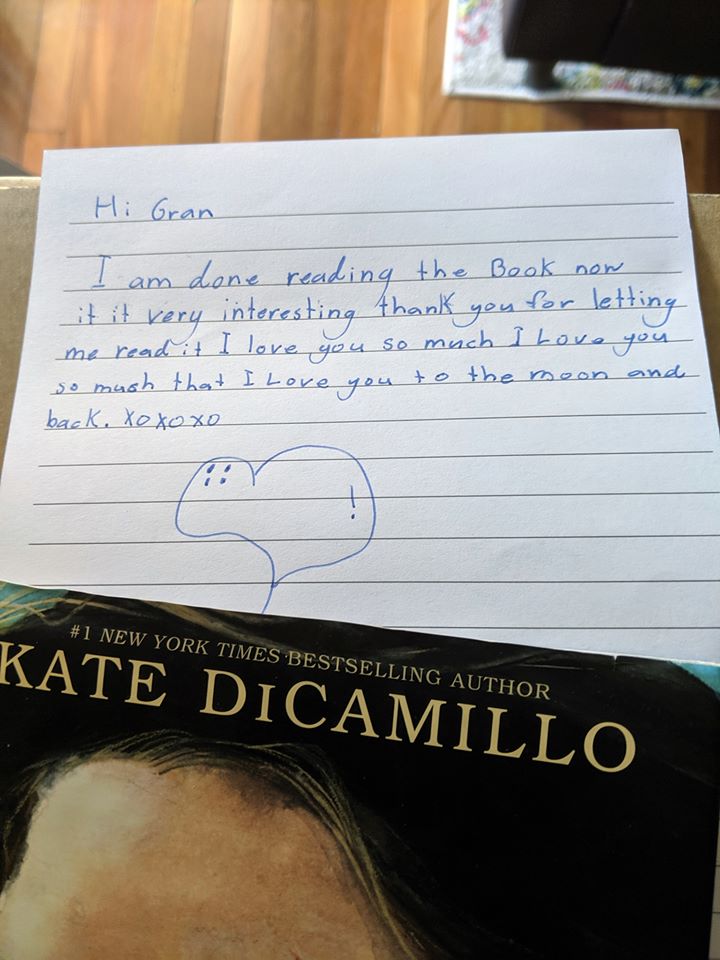 Hi Gran
I am done reading the Book now
it it very interesting thank you for letting
me read it I love you so much I Love you
so much that I Love you to the moon and
back. XOXOXO
!
#1 NEW YORK TIMES BESTSELLING AUTHOR
KATE DICAMILLO